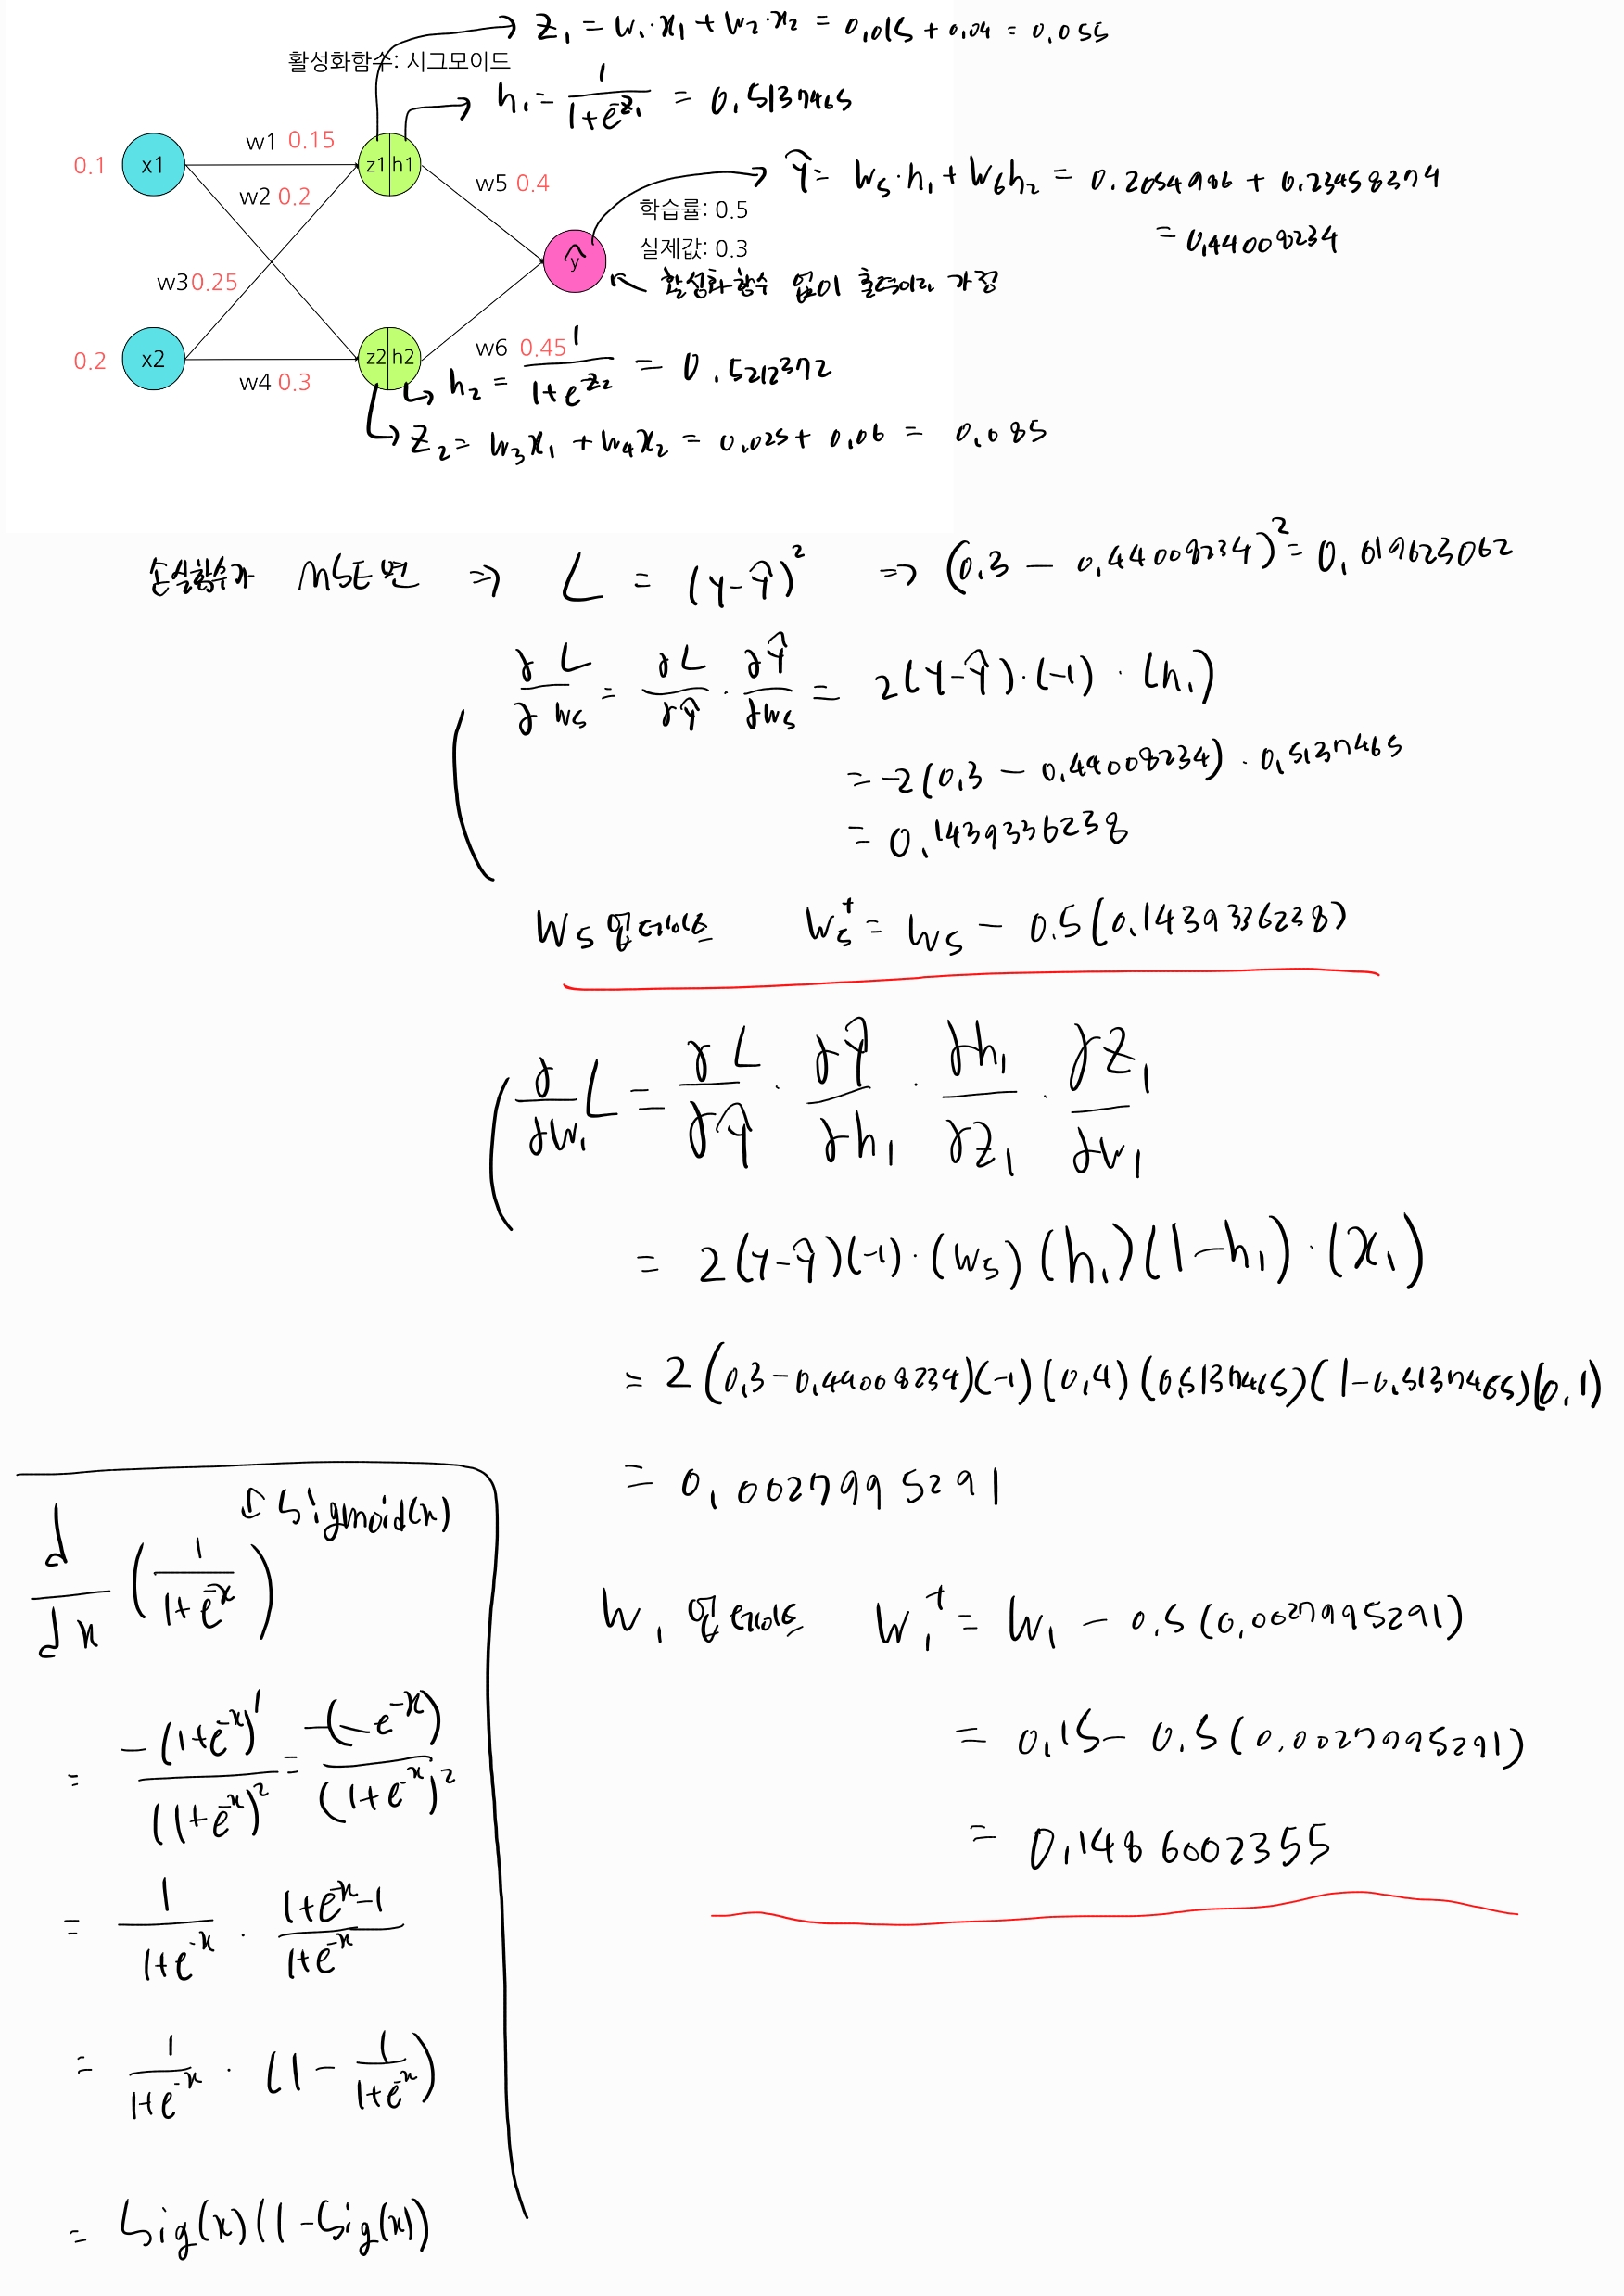 z₁ = w₁·x₁ + w₂·x₂ = 0.015 + 0.04 = 0.055
활성화함수: 시그모이드
h₁ = 1/(1+e^-z₁) = 0.5137465
w1 0.15
0.1 x1 z1 h1
w5 0.4
ŷ = w₅·h₁ + w₆h₂ = 0.2054986 + 0.23458374
w2 0.2
학습률: 0.5
= 0.44008234
실제값: 0.3
ŷ
w3 0.25
활성화함수 없이 출력이라 가정
w6 0.45
0.2 x2 z2 h2
h₂ = 1/(1+e^-z₂) = 0.5212372
w4 0.3
z₂ = w₃x₁ + w₄x₂ = 0.025 + 0.06 = 0.085
손실함수가 MSE면 ⇒ L = (y-ŷ)² ⇒ (0.3 - 0.44008234)² = 0.019623062
∂L/∂w₅ = ∂L/∂ŷ · ∂ŷ/∂w₅ = 2(y-ŷ)·(-1)·(h₁)
= -2(0.3 - 0.44008234)·0.5137465
= 0.1439336238
w₅ 업데이트 w₅⁺ = w₅ - 0.5(0.1439336238)
∂/∂w₁ L = ∂L/∂ŷ · ∂ŷ/∂h₁ · ∂h₁/∂z₁ · ∂z₁/∂w₁
= 2(y-ŷ)(-1)·(w₅)(h₁)(1-h₁)·(x₁)
= 2(0.3-0.44008234)(-1)(0.4)(0.5137465)(1-0.5137465)(0.1)
= 0.0027995291
w₁ 업데이트 w₁⁺ = w₁ - 0.5(0.0027995291)
= 0.15 - 0.5(0.0027995291)
= 0.1486002355
Sigmoid(x)
d/dx (1/(1+e^-x))
= -(1+e^-x)'/(1+e^-x)² = -(-e^-x)/(1+e^-x)²
= 1/(1+e^-x) · (1+e^-x-1)/(1+e^-x)
= 1/(1+e^-x) · (1 - 1/(1+e^-x))
= Sig(x)(1-Sig(x))